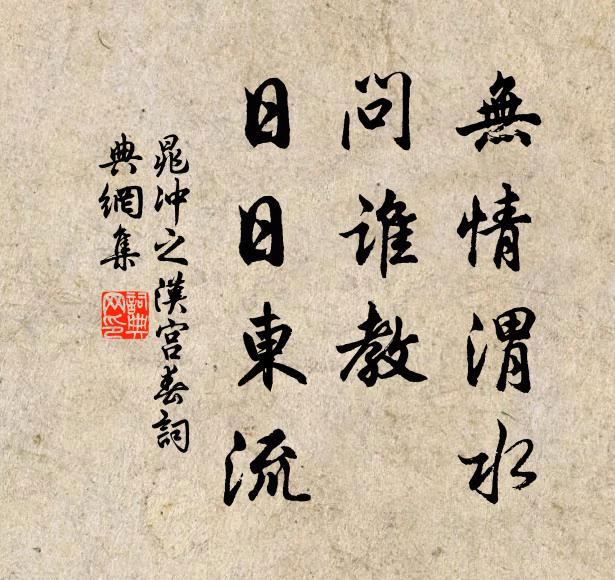 無情渭水
問誰教
日日東流
晁沖之漢宮春詞
典網集
詞典網印